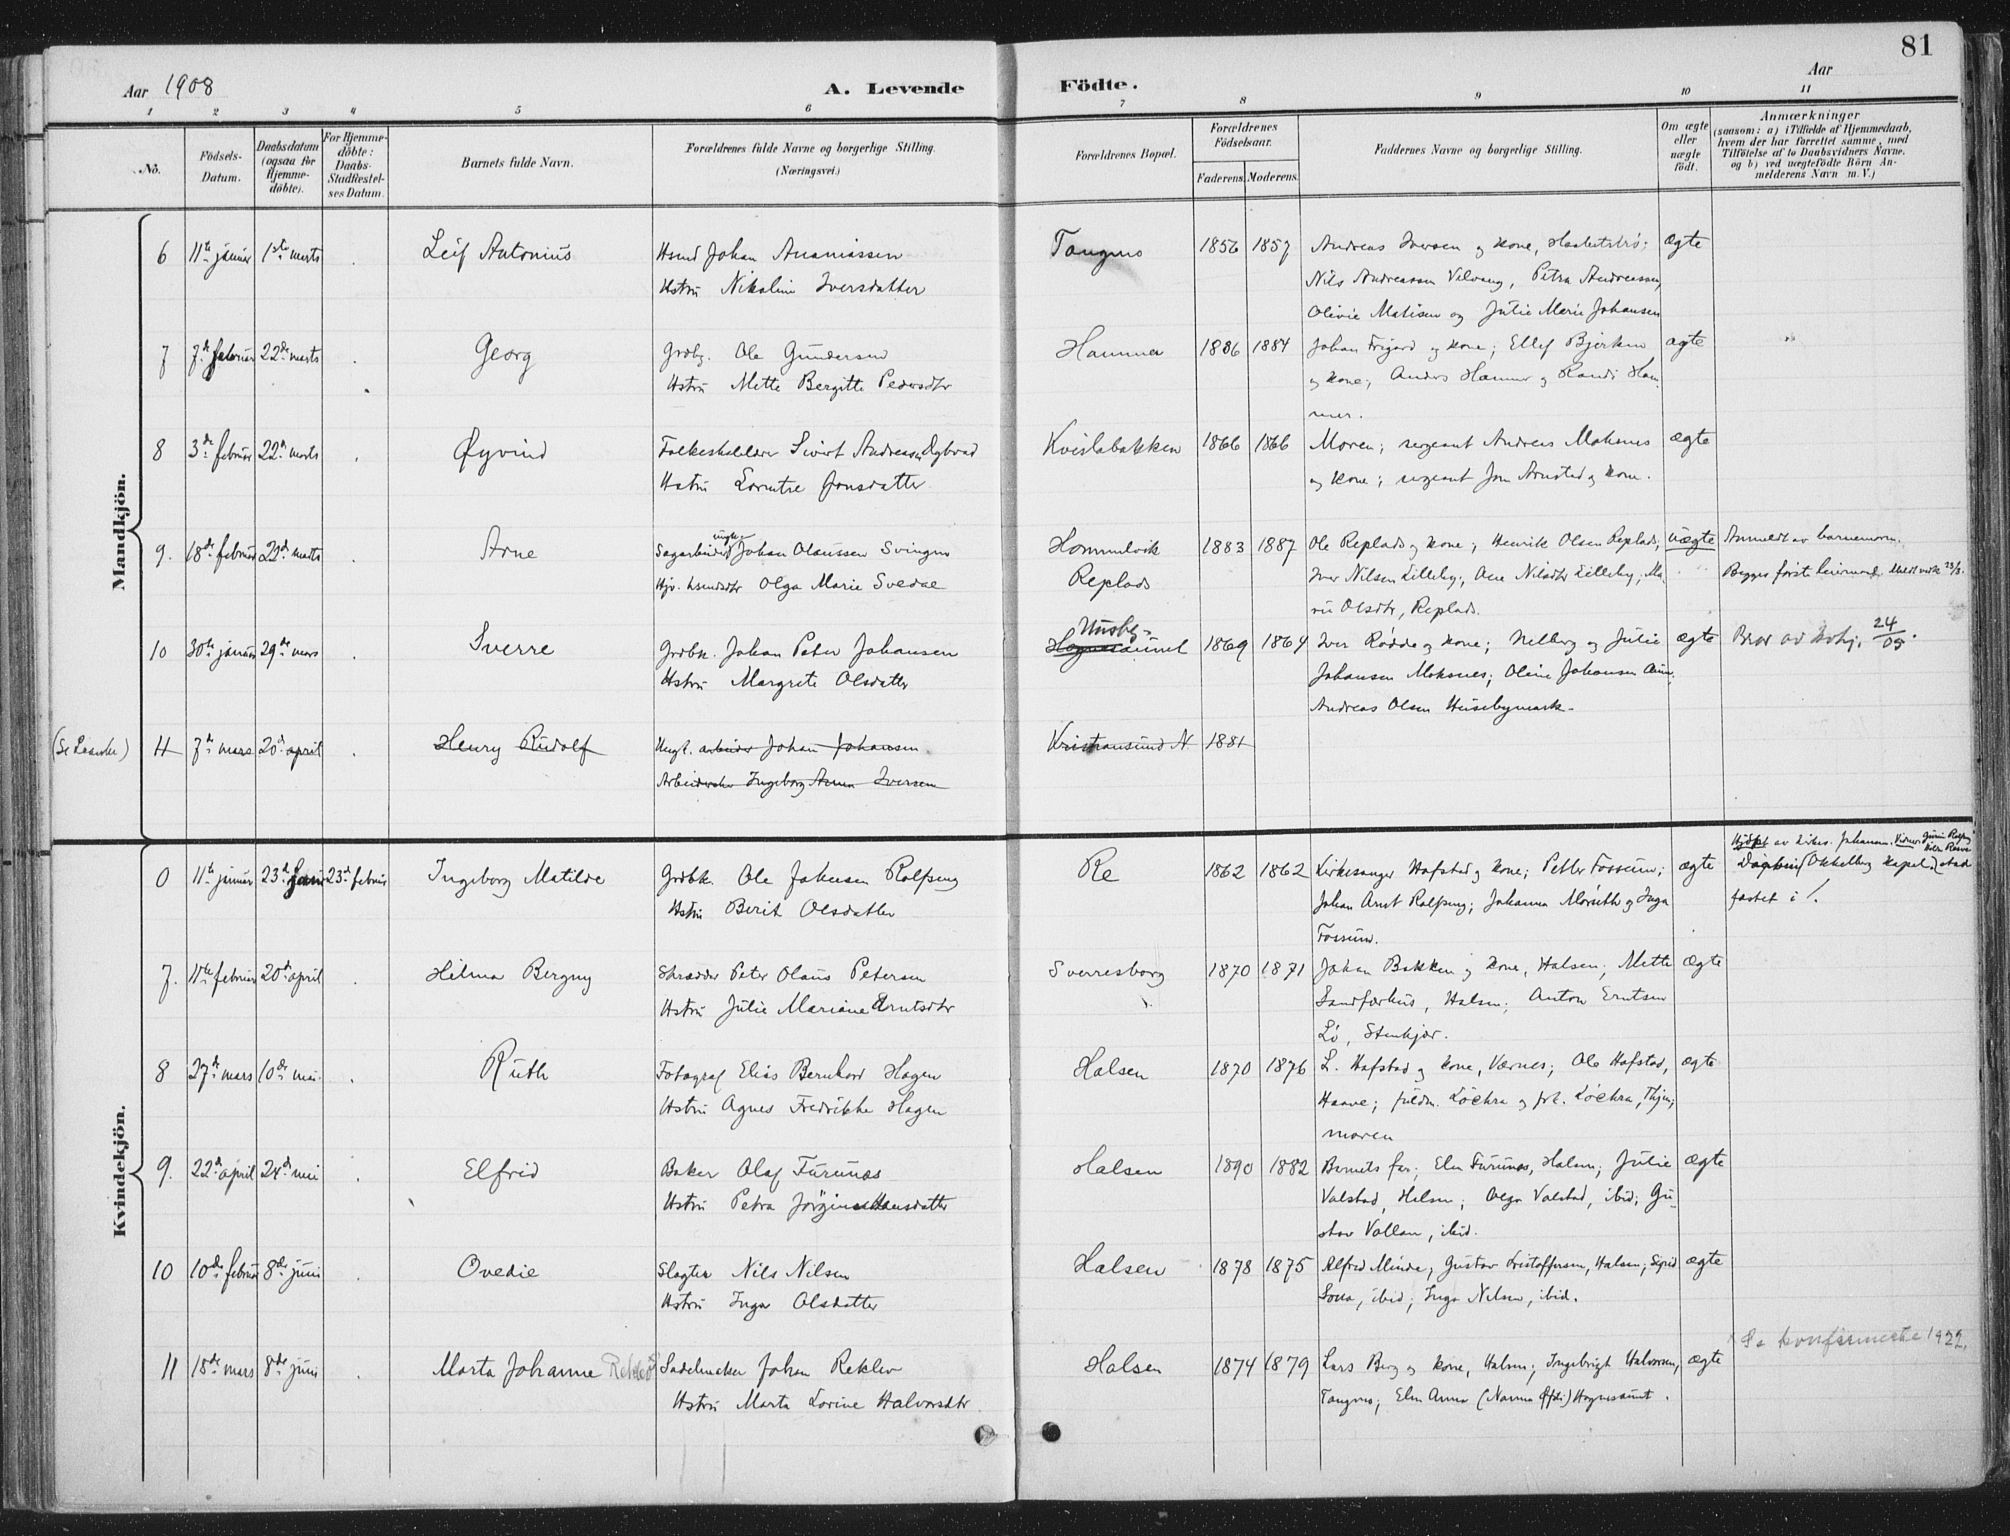 81
Aar 1908
A. Levende Födte.
Aar
1 2 3 4 5 6 7 8 9 10 11
No.
Födsels-Datum.
Daabsdatum (ogsaa for Hjemme-döbte).
For Hjemme-döbte: Daabs-Stadfestel-ses Datum.
Barnets fulde Navn.
Forældrenes fulde Navne og borgerlige Stilling. (Næringsvei.)
Forældrenes Bopæl.
Forældrenes Födselsaar.
Faderens. Moderens.
Faddernes Navne og borgerlige Stilling.
Om ægte eller uægte födt.
Anmærkninger
(saasom: a) i Tilfælde af Hjemmedaab, hvem der har forrettet samme, med Tilföielse af to Daabsvidners Navne. og b) ved uegtefödte Börn Anmelderens Navn m. V.)
Mandkjön.
6 11te januar 1ste marts Leif Antonius Hsmd Johan Ananiassen Tangmo 1856 1857 Andreas Iversen og kone, ægte
Hstru Nikoline Iversdatter Nils Andreassen Velvang, Petra Andreassen,
Olivie Matisen og Julie Marie Johansen
7 7de februar 22de marts Georg Grdbr. Ole Gundersen Hammer 1886 1884 Johan Trigard og kone; Ellef Bjerken ægte
Hstru Mette Bergitte Pedersdtr og kone; Anders Hammer og Randi Ham-
mer.
8 3de februar 22de marts Øyvind Folkeskolelærer Sivert Andreassen Dybvad Kvislabakken 1866 1866 Moren; sergeant Andreas Moksnes ægte
Hstru Lorentse Jonsdatter og kone; sergeant Jon Arnstad og kone.
9. 18de februar 22de marts Arne Sagarbeider ungkar Johan Olaussen Svingen Hommelvik 1883 1887 Ole Replads og kone; Henrik Olsen Replads; uægte Anmeldt av barnemoren.
Hjv. hsmdsdtr Olga Marie Svedae Replads Iver Nilsen Lilleby; Ane Nilsdtr Lilleby; Ma-
rie Olsdtr, Replads. Begges först leiermaal. Meldt 23/3.
10 30te januar 29de mars Sverre Grdbr. Johan Peter Johansen Husby- Hognesaunet 1869 1864 Iver Rødde og kone; Helberg og Julie ægte Bror av 24/05.
Hstru Margrete Olsdatter Johansen Moksnes; Oline Johansen Aune,
Andreas Olsen Husebymark.
(Se Laanke) 11 7de mars 20de april Henry Rudolf Ungk. arbeider Johan Johansen Kristiansund N 1881
Arbeiderske Ingeborg Anna Iversen
Kvindekjön.
0 11te januar 23de januar 23de februar Ingeborg Matilde Grdbr. Ole Johnsen Rolfseng Re 1862 1862 Kirkesanger Hafstad og kone; Petter Fossum; ægte Hjdøbt av
Hstru Berit Olsdatter Johan Arnt Rolfseng; Johanna Mørseth og Inga
Fossum.
7. 11te februar 20de april Hilma Bergny Skrædder Peter Olaus Petersen Sverresborg 1870 1871 Johan Bakken og kone, Halsen; Mette ægte
Hstru Julie Mariane Arntsdtr Sandfærhus, Halsen; Anton Erntsen
Lø, Stenkjær.
8 27de mars 10de mai Ruth Fotograf Elias Bernhard Hagen Halsen 1870 1876 L. Hafstad og kone, Værnes; Ole Hafstad, ægte
Hstru Agnes Fredrikke Hagen Haave; fuldm. Löchra og frk. Löchra, Thjem;
moren
9. 22de april 24de mai Elfrid Baker Olaf Furunes Halsen 1890 1882 Barnets far; Elen Furunes, Halsen; Julie ægte
Hstru Petra Jørgine Hansdatter Valstad, Halsen; Aega Valstad, ibid; Gu-
stav Vollan, ibid.
10 10de februar 8de juni Ovedie Slagter Nils Nilsen Halsen 1878 1875 Alfred Minde; Gustav Kristoffersen, Halsen; Sigrid ægte
Hstru Inga Olsdatter Sona, ibid; Inga Nilsen, ibid.
11 18de mars 8de juni Marta Johanne Reklev Sadelmaker Johan Reklev Halsen 1874 1879 Lars Berg og kone, Halsen; Ingebrigt Halvorsen, ægte Se konfirmerte 1922.
Hstru Marta Lovine Halvorsdtr Tangmo; Elen Anna Hognesaunet.